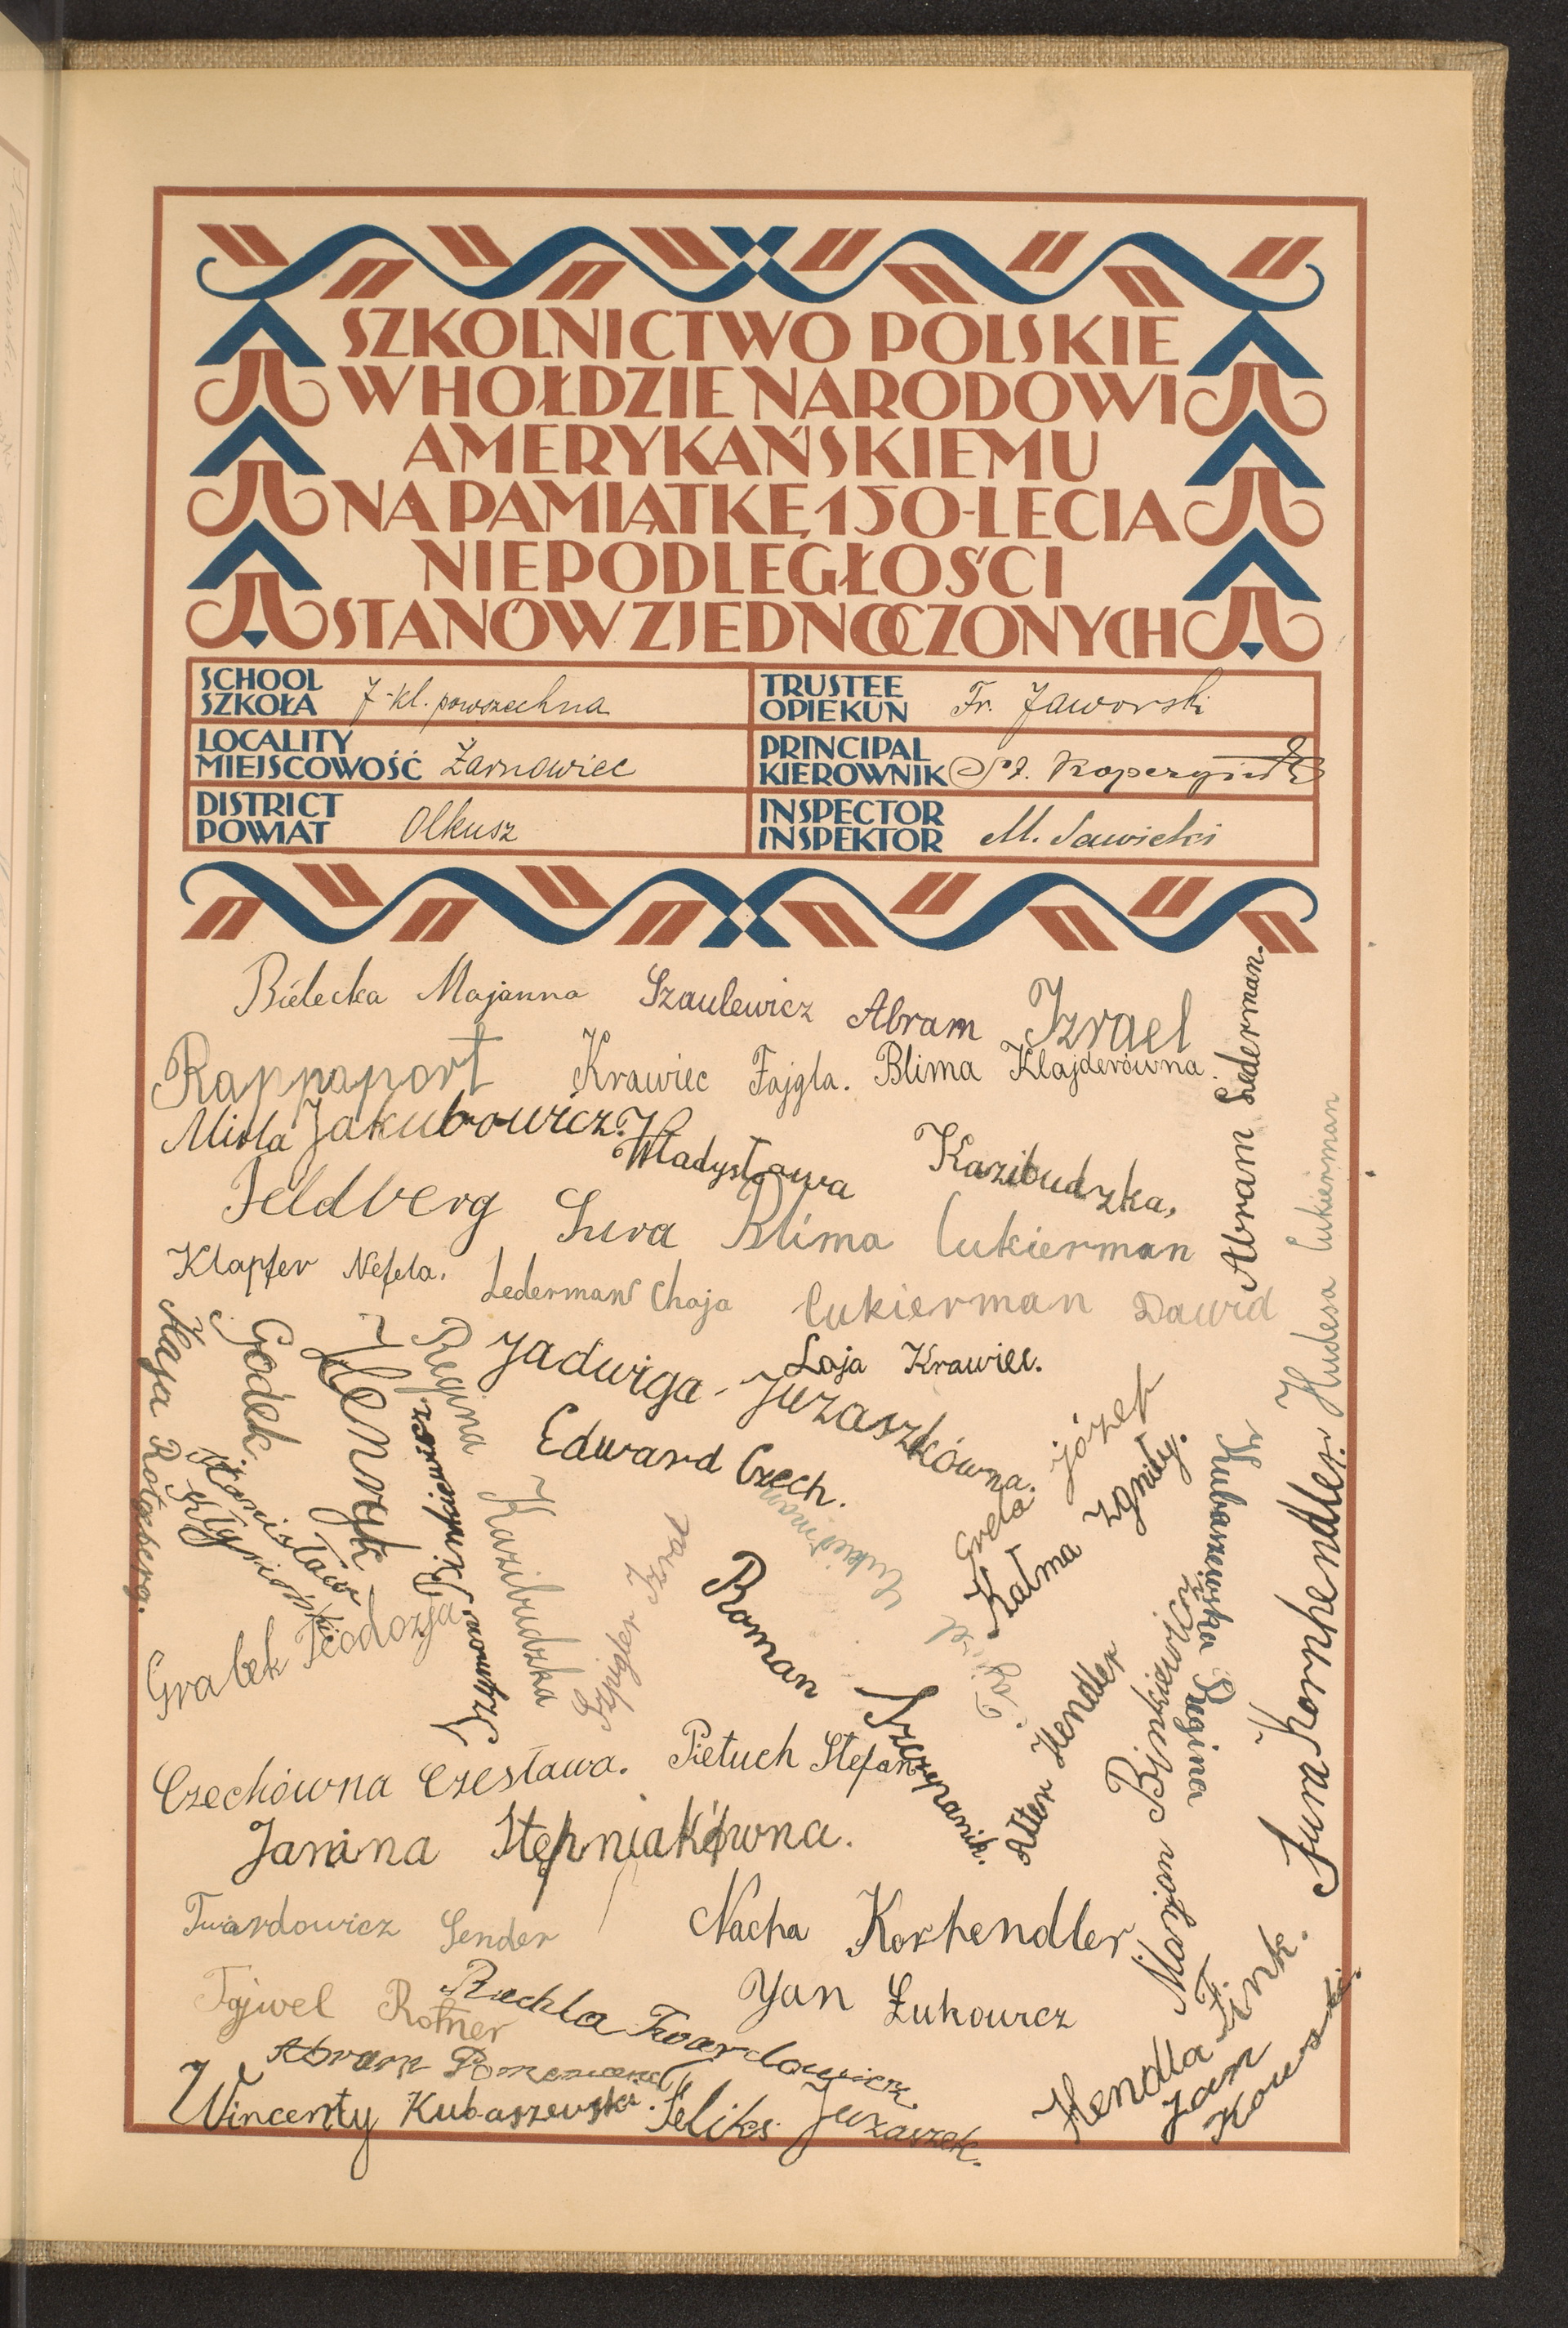 SZKOLNICTWO POLSKIE
W HOŁDZIE NARODOWI
AMERYKAŃSKIEMU
NA PAMIĄTKĘ 150-LECIA
NIEPODLEGŁOŚCI
STANÓW ZJEDNOCZONYCH
SCHOOL
SZKOŁA 7-kl. powszechna
TRUSTEE
OPIEKUN Fr. Jaworski
LOCALITY
MIEJSCOWOŚĆ Żarnowiec
PRINCIPAL
KIEROWNIK
DISTRICT
POWIAT Olkusz
INSPECTOR
INSPEKTOR M. Sawicki
Bielecka Majanna Szaulewicz Abram Izrael
Rappaport Krawiec Fajgla. Blima Klajderówna.
Abram Lederman.
Mirla Jakubowicz.
Władysława Kazibudzka,
Feldberg Sura Blima Cukierman
Klapfer Nefela. Lederman Chaja Cukierman Dawid
Hudesa Cukierman
Jadwiga Juzaszkówna.
Laja Krawiec.
Edward Czech.
Godek Henryk
Regina Kazibudzka
Stanisław
Grabek Teodozja
Szpigler Izral
Roman Szczepanik.
Józef
Kałma Zgnity.
Kubaszewska Regina
Sura Kornhendler.
Alter Hendler
Marjan Binkiewicz
Czechówna Czesława. Pietuch Stefan
Janina Stępniakówna.
Twardowicz Sender Nacha Korhendler
Fajwel Rotner Ruchla Twardowicz
Yan Łukowicz
Hendla Fink.
Jan Kowalski.
Abram
Wincenty Kubaszewski. Feliks Juzaszek.